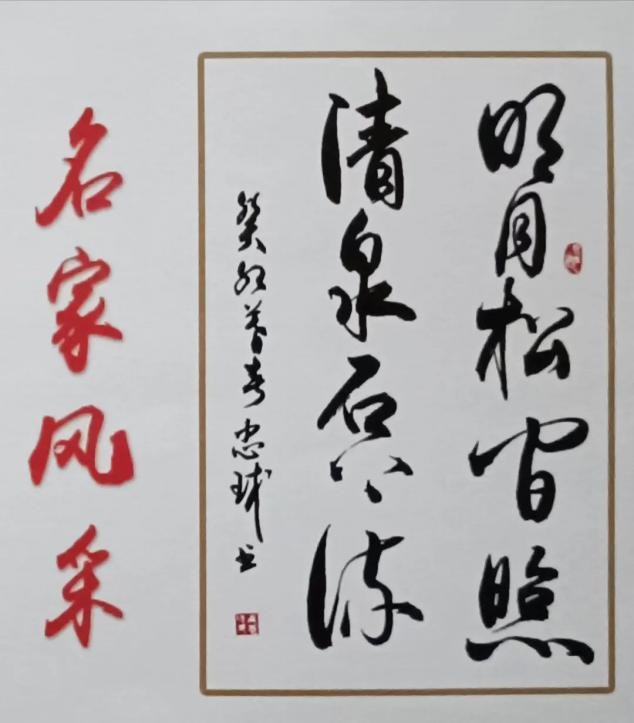 明月松间照
清泉石上流
癸卯暮春忠球书
名家风采